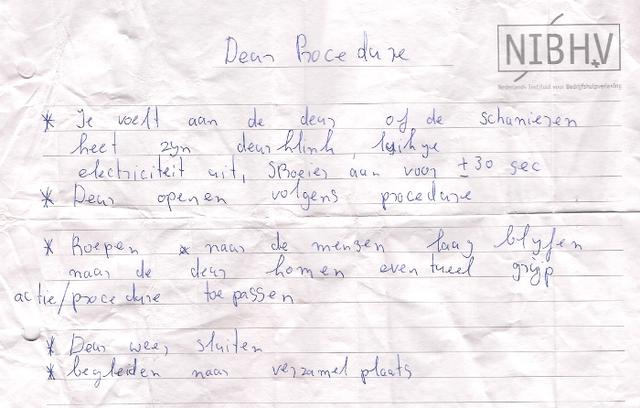 Deur Procedure
NIBHV
Nederlands Instituut voor Bedrijfshulpverlening
* Je voelt aan de deur of de schanieren
heet zyn deurklink,
electriciteit uit, sproeier aan voor ±30 sec
* Deur openen volgens procedure
* Roepen naar de mensen laag blyfen
naar de deur komen eventueel gryp
actie/procedure toepassen
* Deur weer sluiten
* begleiden naar verzamelplaats